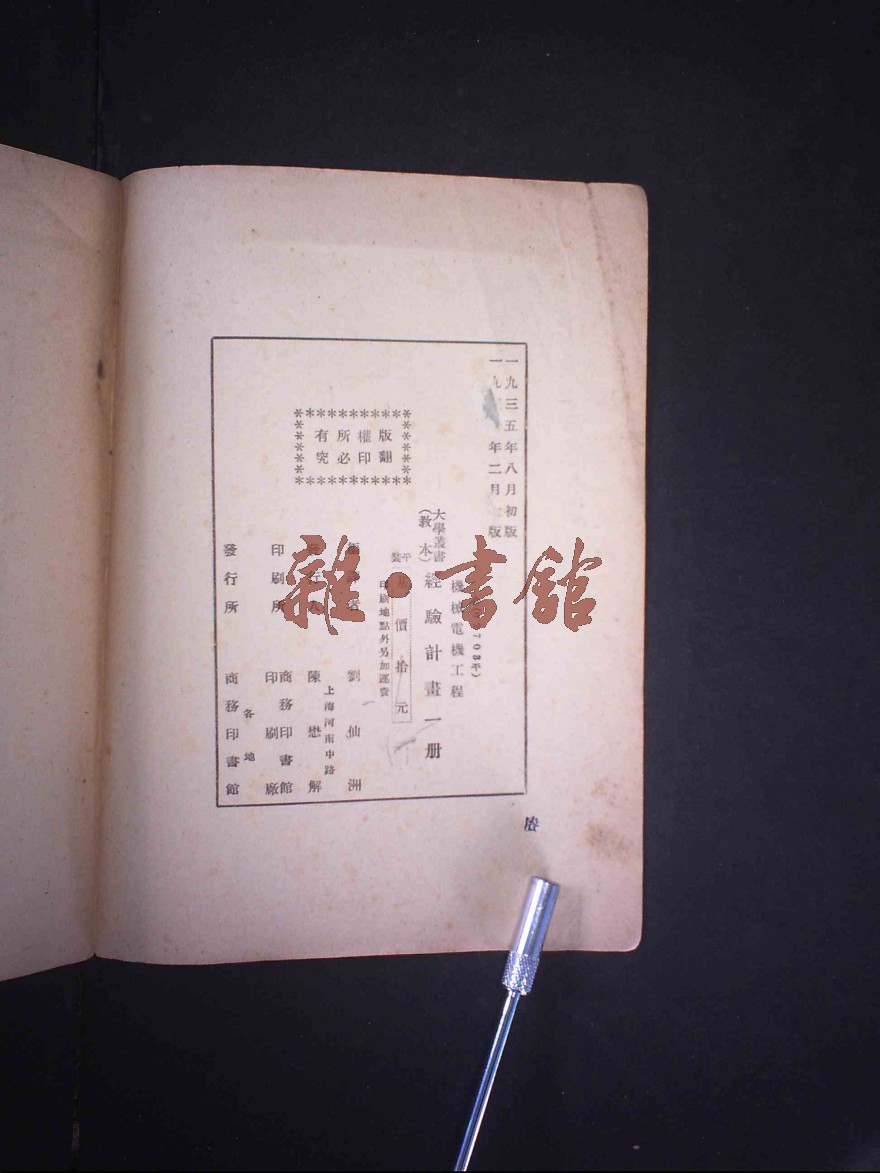 一九三五年八月初版
年二月 版
708平)
大學叢書
(教本)
機械電機工程
經驗計畫一册
平裝
價拾元
印刷地點外另加運費
版權所有
翻印必究
劉仙洲
陳懋解
上海河南中路
印刷所
商務印書館
印刷廠
發行所
各地
商務印書館
雜·書館